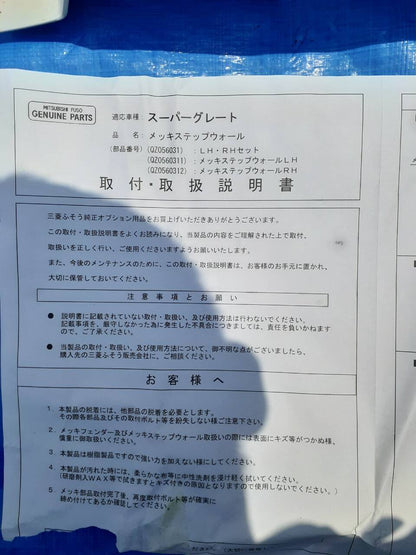 MITSUBISHI FUSO
GENUINE PARTS
適応車種: スーパーグレート
品 名: メッキステップウォール
(部品番号) (QZ056031) : LH・RHセット
(QZ0560311) : メッキステップウォールLH
(QZ0560312) : メッキステップウォールRH
取付・取扱説明書
三菱ふそう純正オプション用品をお買上げいただきありがとうございます。
この取付・取扱説明書をよくお読みになり、当製品の内容をご理解された上で取付、
取扱いを正しく行い、ご使用くださいますようお願いいたします。
また、今後のメンテナンスのために、この取付・取扱説明書は、お客様のお手元に置かれ、
大切に保管しておいてください。
注意事項とお願い
● 説明書に記載されていない取付・取扱い、及び使用方法は行わないでください。
記載事項を、厳守しなかった為に発生した不具合につきましては、責任を負いかねますので、ご了承ください。
● 当製品の取付・取扱い、及び使用方法について、御不明な点がございましたら、
購入先の三菱ふそう販売会社に、ご相談ください。
お客様へ
1 本製品の脱着には、他部品の脱着を必要とします。
その際各部品及びその取付ボルト等を紛失しない様ご注意下さい。
2 メッキフェンダー及びメッキステップウォール取扱いの際には表面にキズ等がつかぬ様、
慎重に御取扱いください。
3 本製品は樹脂製品ですので強い力を加えない様にしてください。
4 本製品が汚れた時には、柔らかな布等に中性洗剤を浸け軽く拭いてください。
(研磨剤入WAX等で拭きますとキズ付きの原因となりますので使用しないでください。)
5 メッキ部品取付完了後、再度取付ボルト等が確実に
締め付けてあるか確認してください。